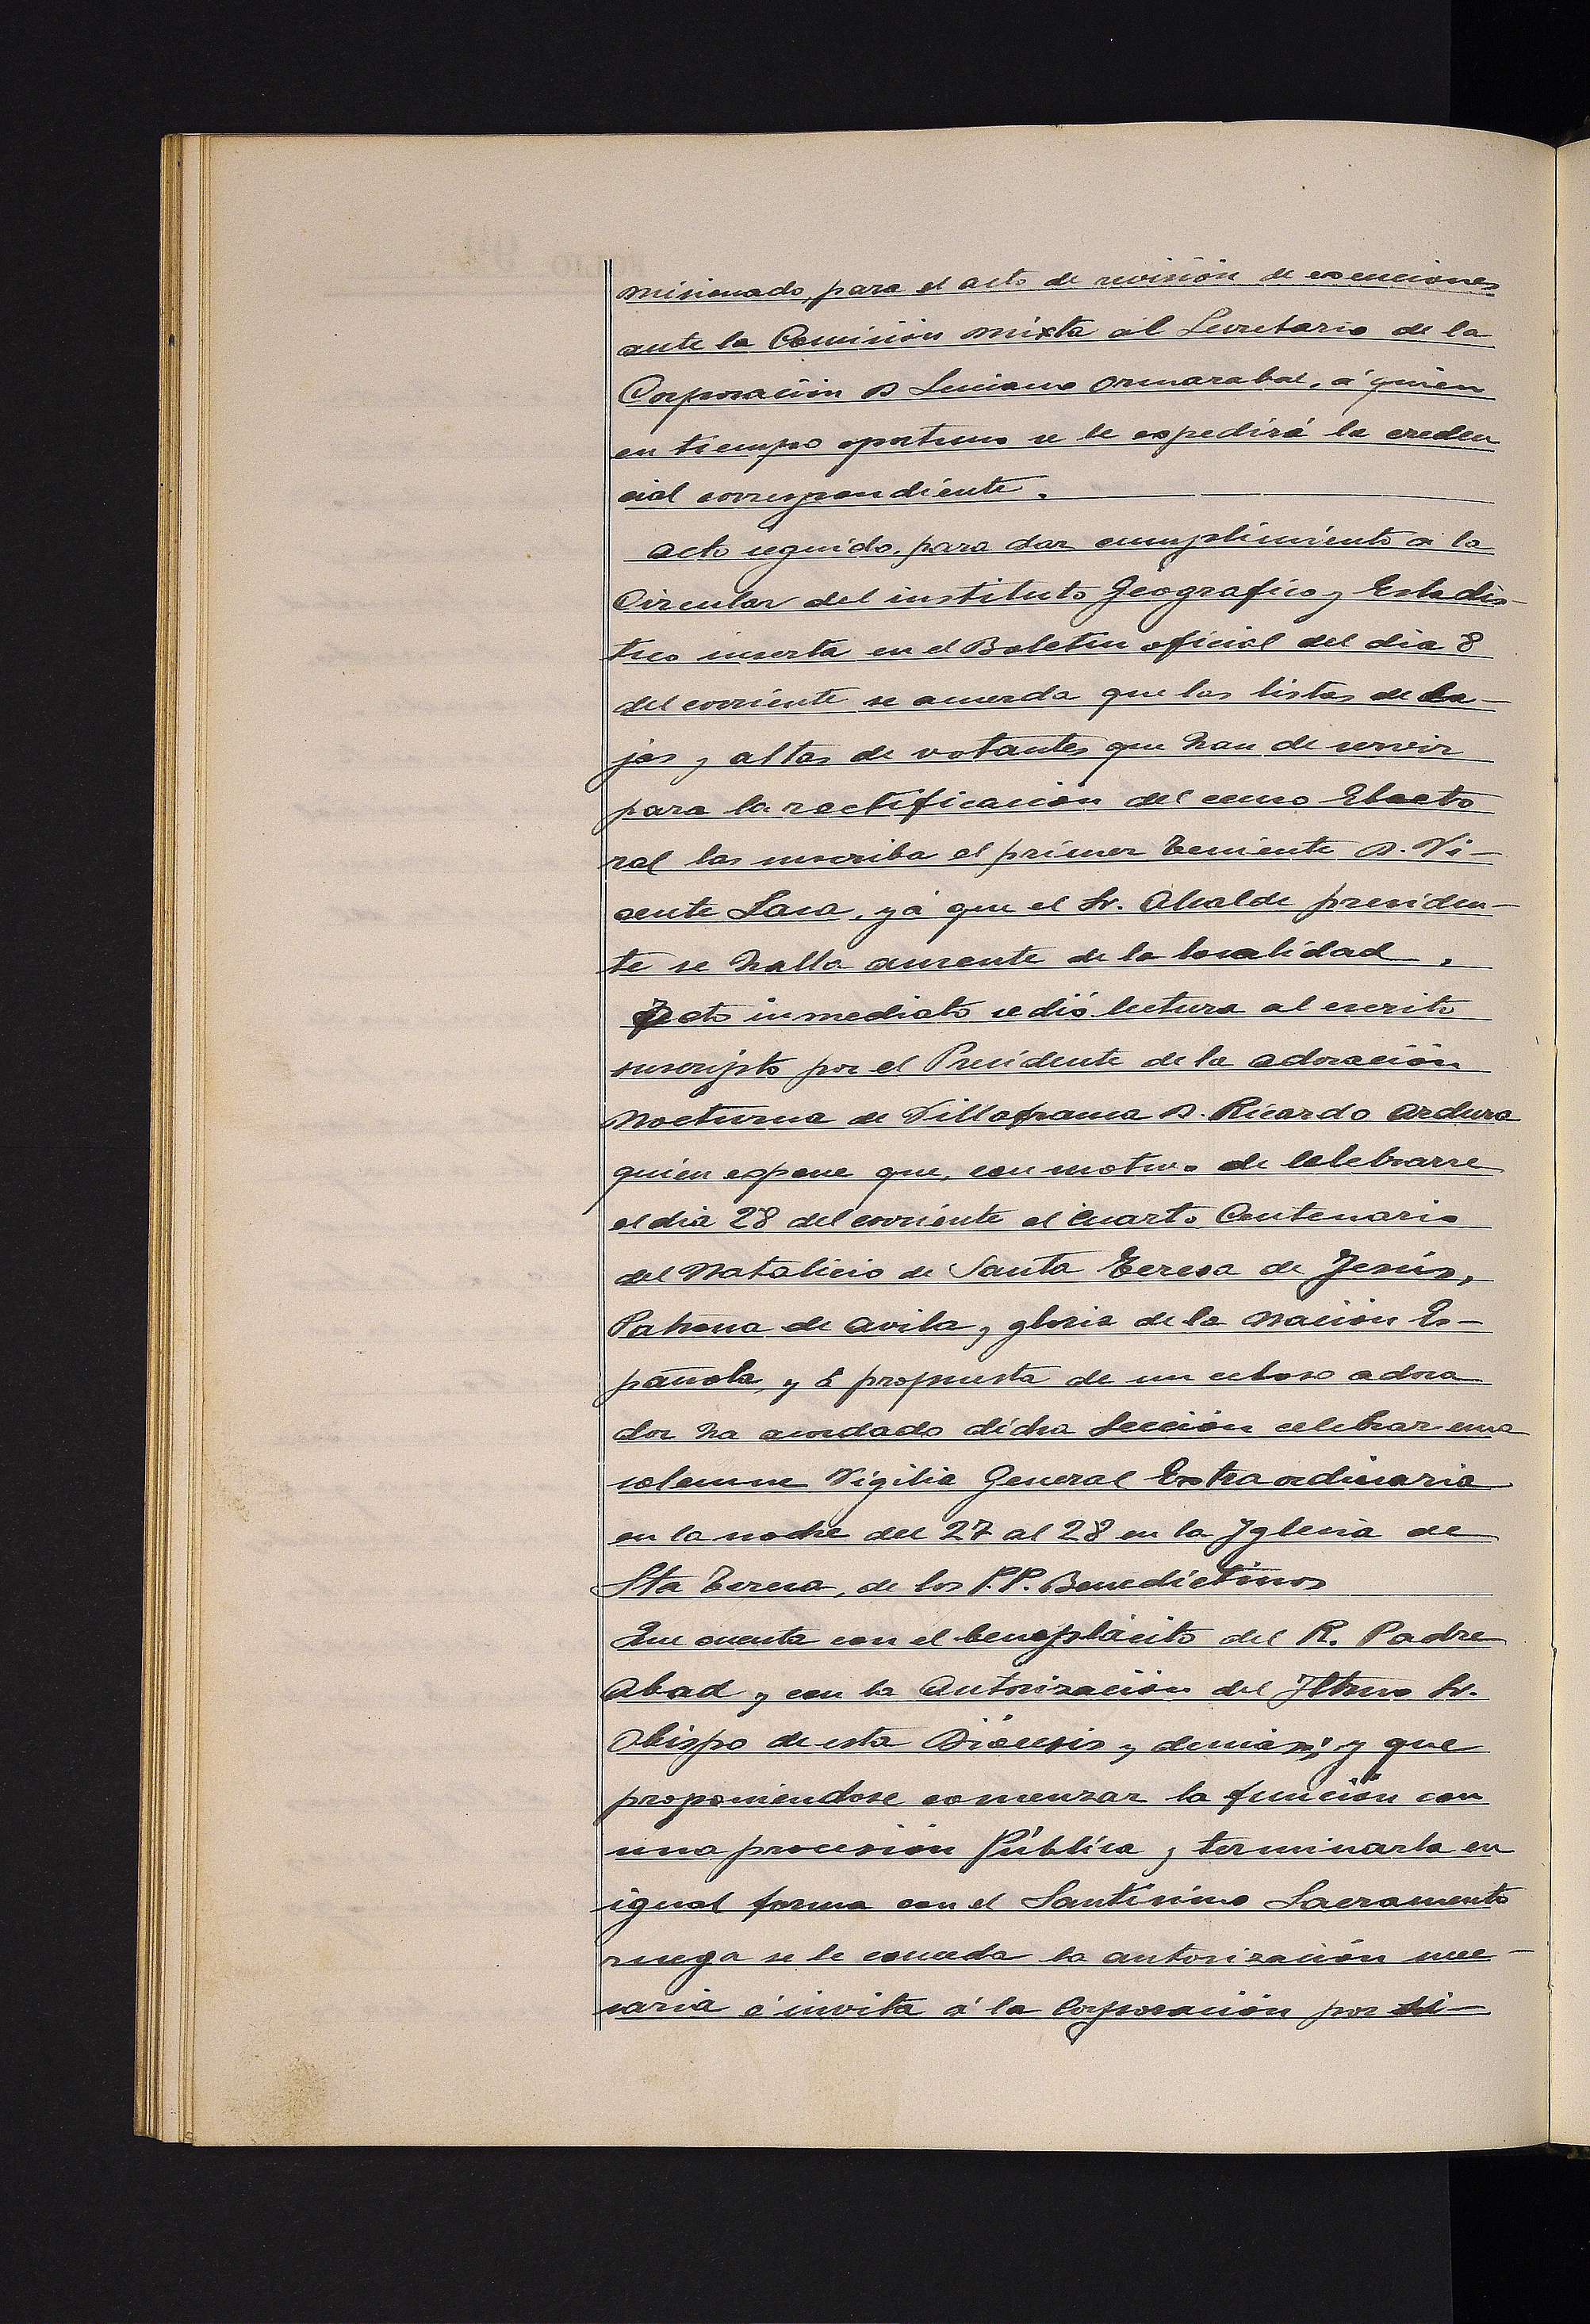 misionado, para el acto de revisión de exenciones
ante la Comisión mixta al Secretario de la
Corporación D Luciano Ormarabal, á quien
en tiempo oportuno se le expedirá la creden
cial correspondiente.
acto seguido, para dar cumplimiento a la
Circular del instituto Geografico y Estadis-
tico inserta en el Boletin oficial del dia 8
del corriente se acuerda que las listas de ba-
jas y altas de votantes que han de servir
para la rectificación del censo Electo
ral las suscriba el primer Teniente D. Vi-
cente Lasa, yá que el Sr. Alcalde presiden-
te se halla ausente de la localidad.
Acto inmediato se dió lectura al escrito
suscripto por el Presidente de la adoración
Nocturna de Villafranca D. Ricardo Ardura
quien expone que, con motivo de celebrarse
el dia 28 del corriente el Cuarto Centenario
del Natalicio de Santa Teresa de Jesús,
Patrona de Avila, y gloria de la Nación Es-
pañola, y á propuesta de un celoso adora
dor ha acordado dicha Sección celebrar una
solemne Vigilia General Extraordinaria
en la noche del 27 al 28 en la Yglesia de
Sta Teresa, de los P.P. Benedictinos
Que cuenta con el beneplácito del R. Padre
Abad y con la Autorización del Yltmo Sr.
Obispo de esta Diócesis y demás; y que
proponiendose comenzar la función con
una procesión Pública y terminarla en
igual forma con el Santísimo Sacramento
ruega se le conceda la autorización nece-
saria é invita á la Corporación por si-